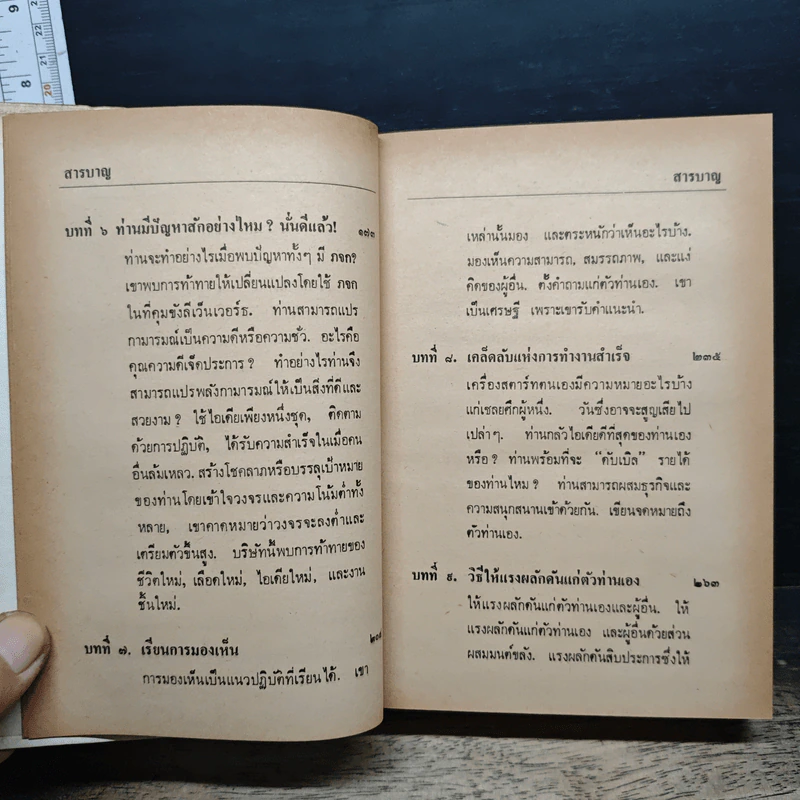 สารบาญ
บทที่ ๖ ท่านมีปัญหาสักอย่างไหม ? นั่นดีแล้ว! ๑๗๓
ท่านจะทำอย่างไรเมื่อพบปัญหาทั้งๆ มี ภจก?
เขาพบการท้าทายให้เปลี่ยนแปลงโดยใช้ ภจก
ในที่คุมขังลีเว็นเวอร์ธ. ท่านสามารถแปร
กามารมณ์เป็นความดีหรือความชั่ว. อะไรคือ
คุณความดีเจ็ดประการ ? ทำอย่างไรท่านจึง
สามารถแปรพลังกามารมณ์ให้เป็นสิ่งที่ดีและ
สวยงาม ? ใช้ไอเดียเพียงหนึ่งชุด, ติดตาม
ด้วยการปฏิบัติ, ได้รับความสำเร็จในเมื่อคน
อื่นล้มเหลว. สร้างโชคลาภหรือบรรลุเป้าหมาย
ของท่านโดยเข้าใจวงจรและความโน้มต่ำทั้ง
หลาย, เขาคาดหมายว่าวงจรจะลงต่ำและ
เตรียมตัวขึ้นสูง. บริษัทนี้พบการท้าทายของ
ชีวิตใหม่, เลือดใหม่, ไอเดียใหม่, และงาน
ชิ้นใหม่.
บทที่ ๗. เรียนการมองเห็น
การมองเห็นเป็นแนวปฏิบัติที่เรียนได้. เขา
สารบาญ
เหล่านั้นมอง และตระหนักว่าเห็นอะไรบ้าง.
มองเห็นความสามารถ, สมรรถภาพ, และแง่
คิดของผู้อื่น. ตั้งคำถามแก่ตัวท่านเอง. เขา
เป็นเศรษฐี เพราะเขารับคำแนะนำ.
บทที่ ๘. เคล็ดลับแห่งการทำงานสำเร็จ ๒๓๕
เครื่องสตาร์ทตนเองมีความหมายอะไรบ้าง
แก่เชลยศึกผู้หนึ่ง. วันซึ่งอาจจะสูญเสียไป
เปล่าๆ. ท่านกลัวไอเดียดีที่สุดของท่านเอง
หรือ ? ท่านพร้อมที่จะ “ดับเบิล” รายได้
ของท่านไหม ? ท่านสามารถผสมธุรกิจและ
ความสนุกสนานเข้าด้วยกัน. เขียนจดหมายถึง
ตัวท่านเอง.
บทที่ ๙. วิธีให้แรงผลักดันแก่ตัวท่านเอง ๒๖๓
ให้แรงผลักดันแก่ตัวท่านเองและผู้อื่น. ให้
แรงผลักดันแก่ตัวท่านเอง และผู้อื่นด้วยส่วน
ผสมมนต์ขลัง. แรงผลักดันสิบประการซึ่งให้
9
8
22
21
20